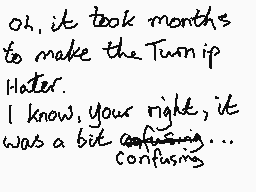 oh, it took months
to make the Turnip
Hater.
I know, your right, it
was a bit confusing...
confusing